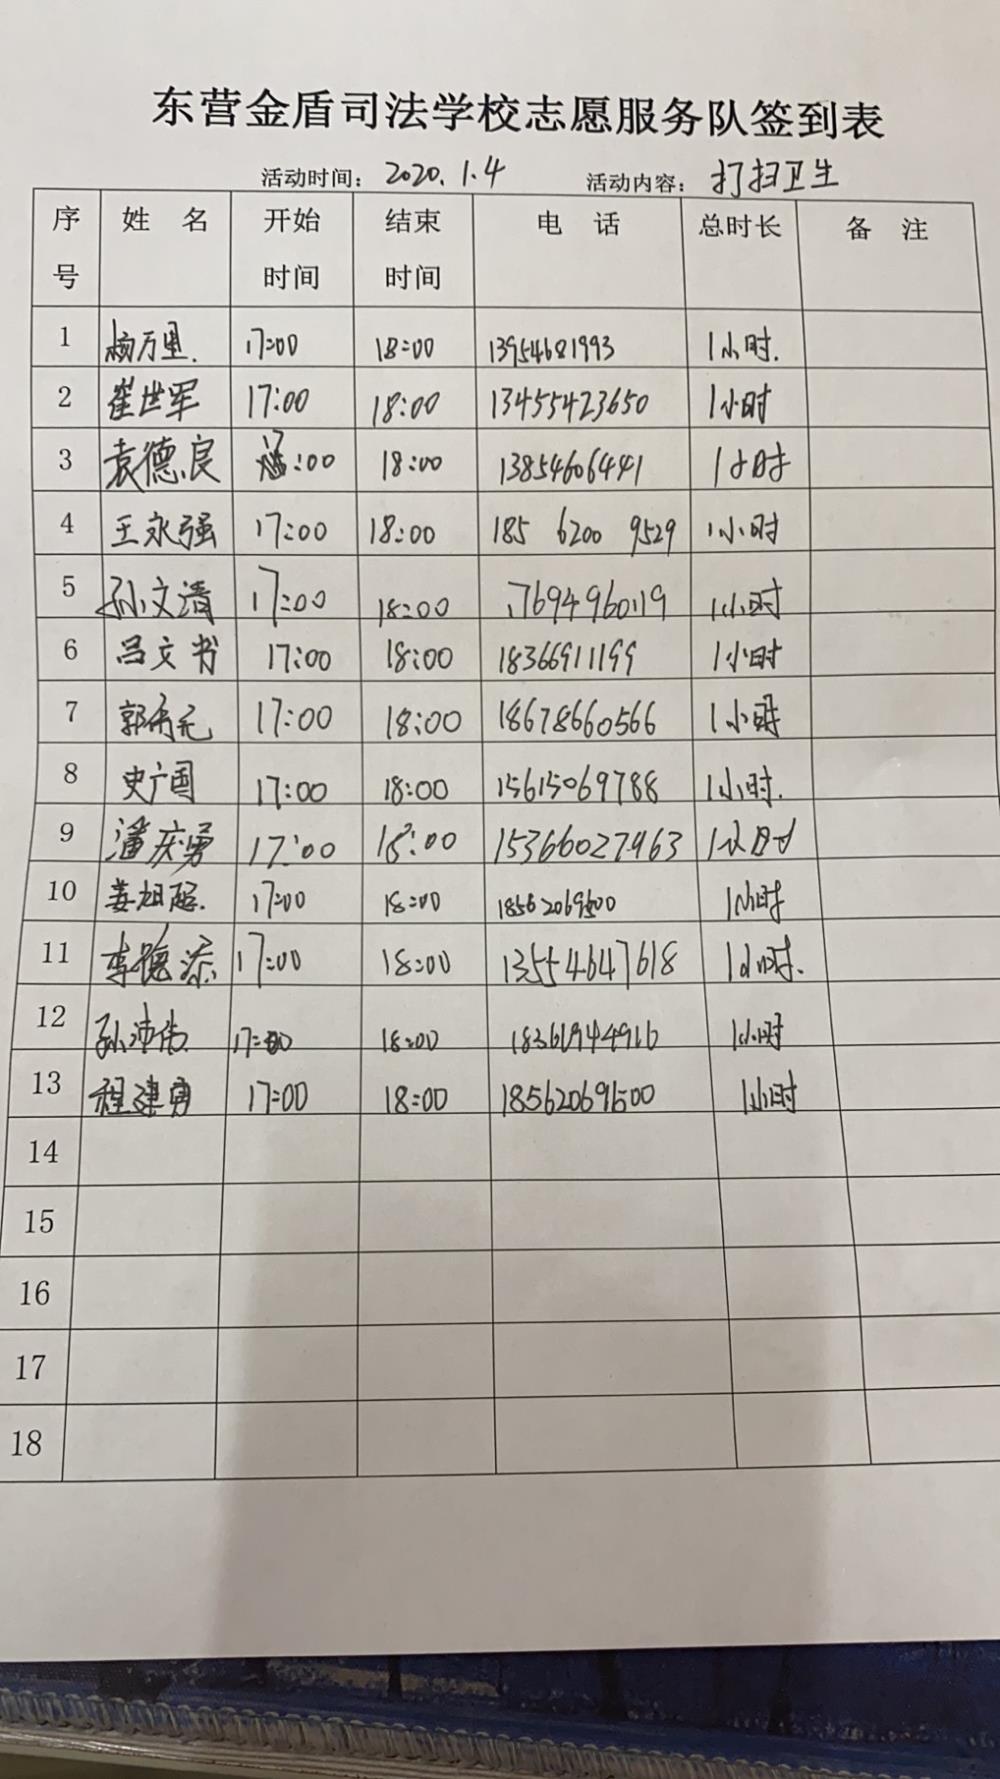 东营金盾司法学校志愿服务队签到表
活动时间：2020.1.4 活动内容：打扫卫生
序号 姓 名 开始时间 结束时间 电 话 总时长 备 注
1 杨万里. 17:00 18:00 13954681993 1小时.
2 崔世军 17:00 18:00 13455423650 1小时
3 袁德良 :00 18:00 13854606441 1小时
4 王永强 17:00 18:00 185 6200 9529 1小时
5 孙文清 17:00 18:00 17694960119 1小时
6 吕文书 17:00 18:00 18366911199 1小时
7 郭 元 17:00 18:00 18678660566 1小时
8 史广国 17:00 18:00 15615069788 1小时.
9 潘庆勇 17:00 18:00 15366027963 1小时
10 姜旭 17:00 18:00 18562069500 1小时
11 李德添 17:00 18:00 13554647618 1小时.
12 孙沛 17:00 18:00 1小时
13 程建勇 17:00 18:00 18562069500 1小时
14
15
16
17
18